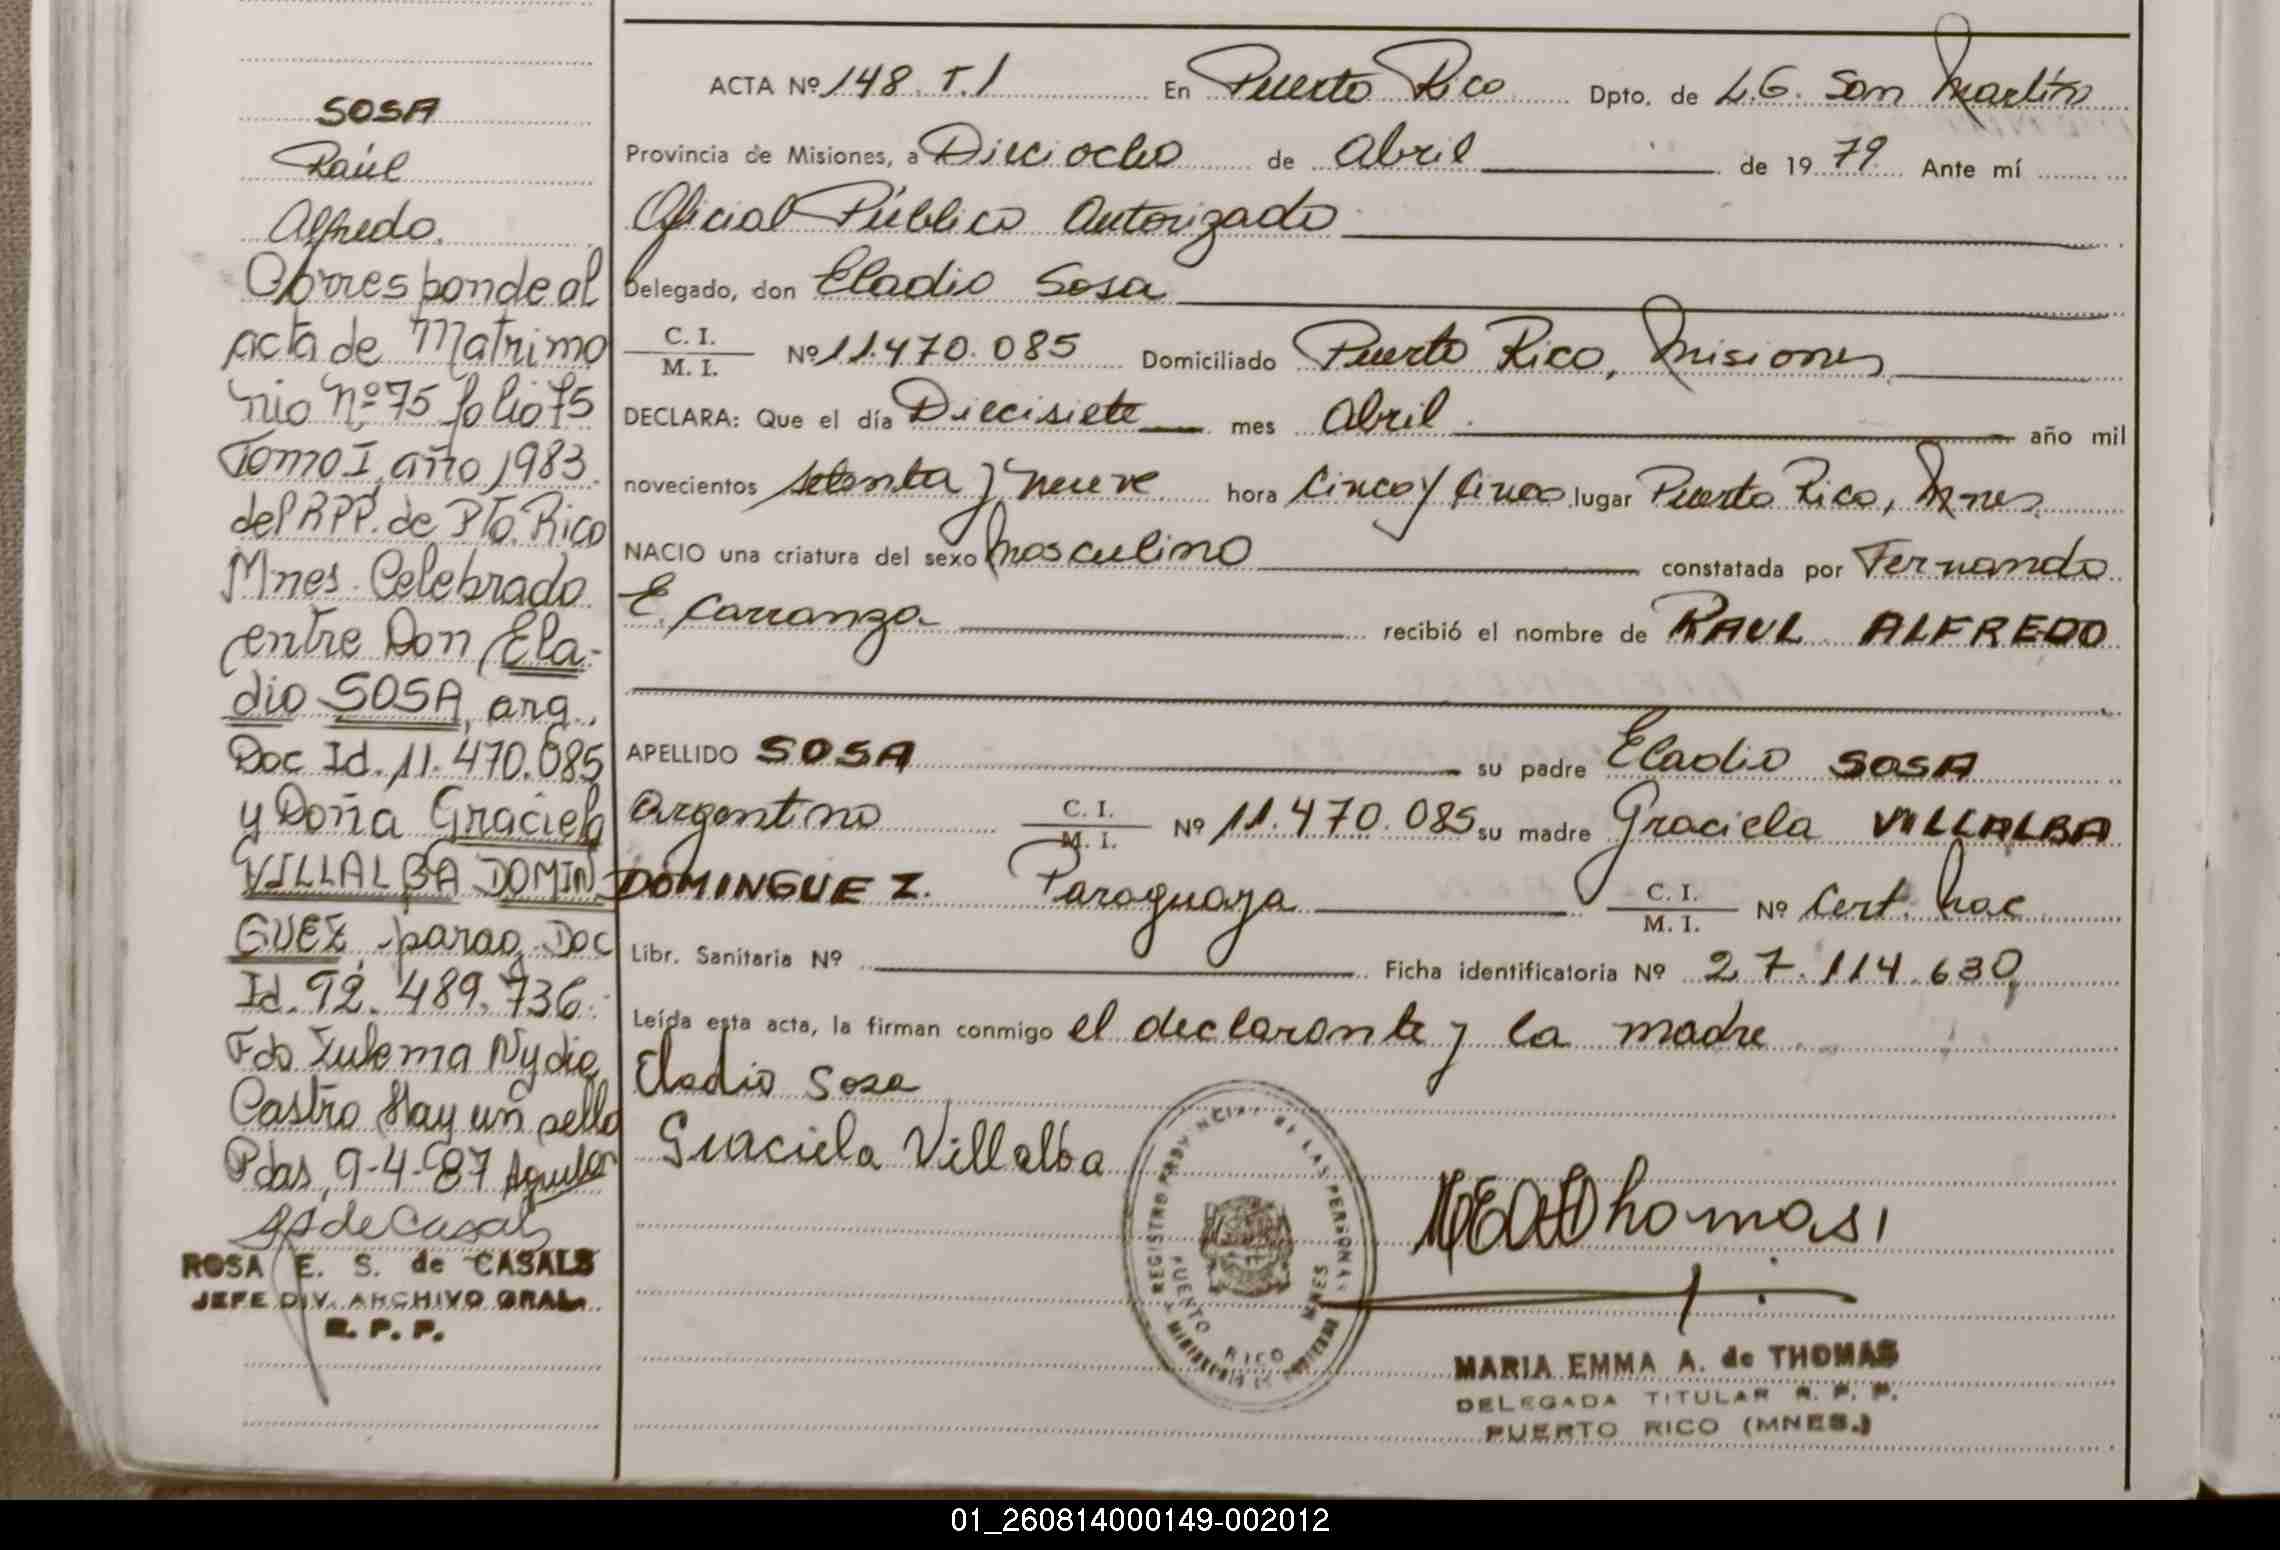 SOSA
Raúl
Alfredo.
Corresponde al
acta de Matrimo
nio Nº 75 folio 75
Tomo I, año 1983.
del RPP. de Pto. Rico
Mnes. Celebrado
entre Don Ela-
dio SOSA, arg.,
Doc Id. 11.470.085
y Doña Graciela
VILLALBA DOMIN
GUEZ, parag. Doc
Id. 92.489.736.
Fdo Zulema Nydia
Castro Hay un sello
Pdas, 9-4-87 Aguilar
ROSA E. S. de CASALS
JEFE DIV. ARCHIVO GRAL.
R. P. P.
ACTA Nº 148. T.I En Puerto Rico Dpto. de L.G. San Martín
Provincia de Misiones, a Dieciocho de Abril de 1979 Ante mí
Oficial Público Autorizado
Delegado, don Eladio Sosa
C. I. / M. I. Nº 11.470.085 Domiciliado Puerto Rico, Misiones
DECLARA: Que el día Diecisiete mes Abril año mil
novecientos setenta y nueve hora Cinco y Cinco lugar Puerto Rico, Mnes.
NACIO una criatura del sexo Masculino constatada por Fernando
E. Carranza recibió el nombre de RAUL ALFREDO
APELLIDO SOSA su padre Eladio SOSA
Argentino C. I. / M. I. Nº 11.470.085 su madre Graciela VILLALBA
DOMINGUEZ. Paraguaya C. I. / M. I. Nº Cert. Nac
Libr. Sanitaria Nº Ficha identificatoria Nº 27.114.630,
Leída esta acta, la firman conmigo el declarante y la madre
Eladio Sosa
Graciela Villalba
REGISTRO PROVINCIAL DE LAS PERSONAS
PUERTO RICO MNES
MARIA EMMA A. de THOMAS
DELEGADA TITULAR R. P. P.
PUERTO RICO (MNES.)
01_260814000149-002012